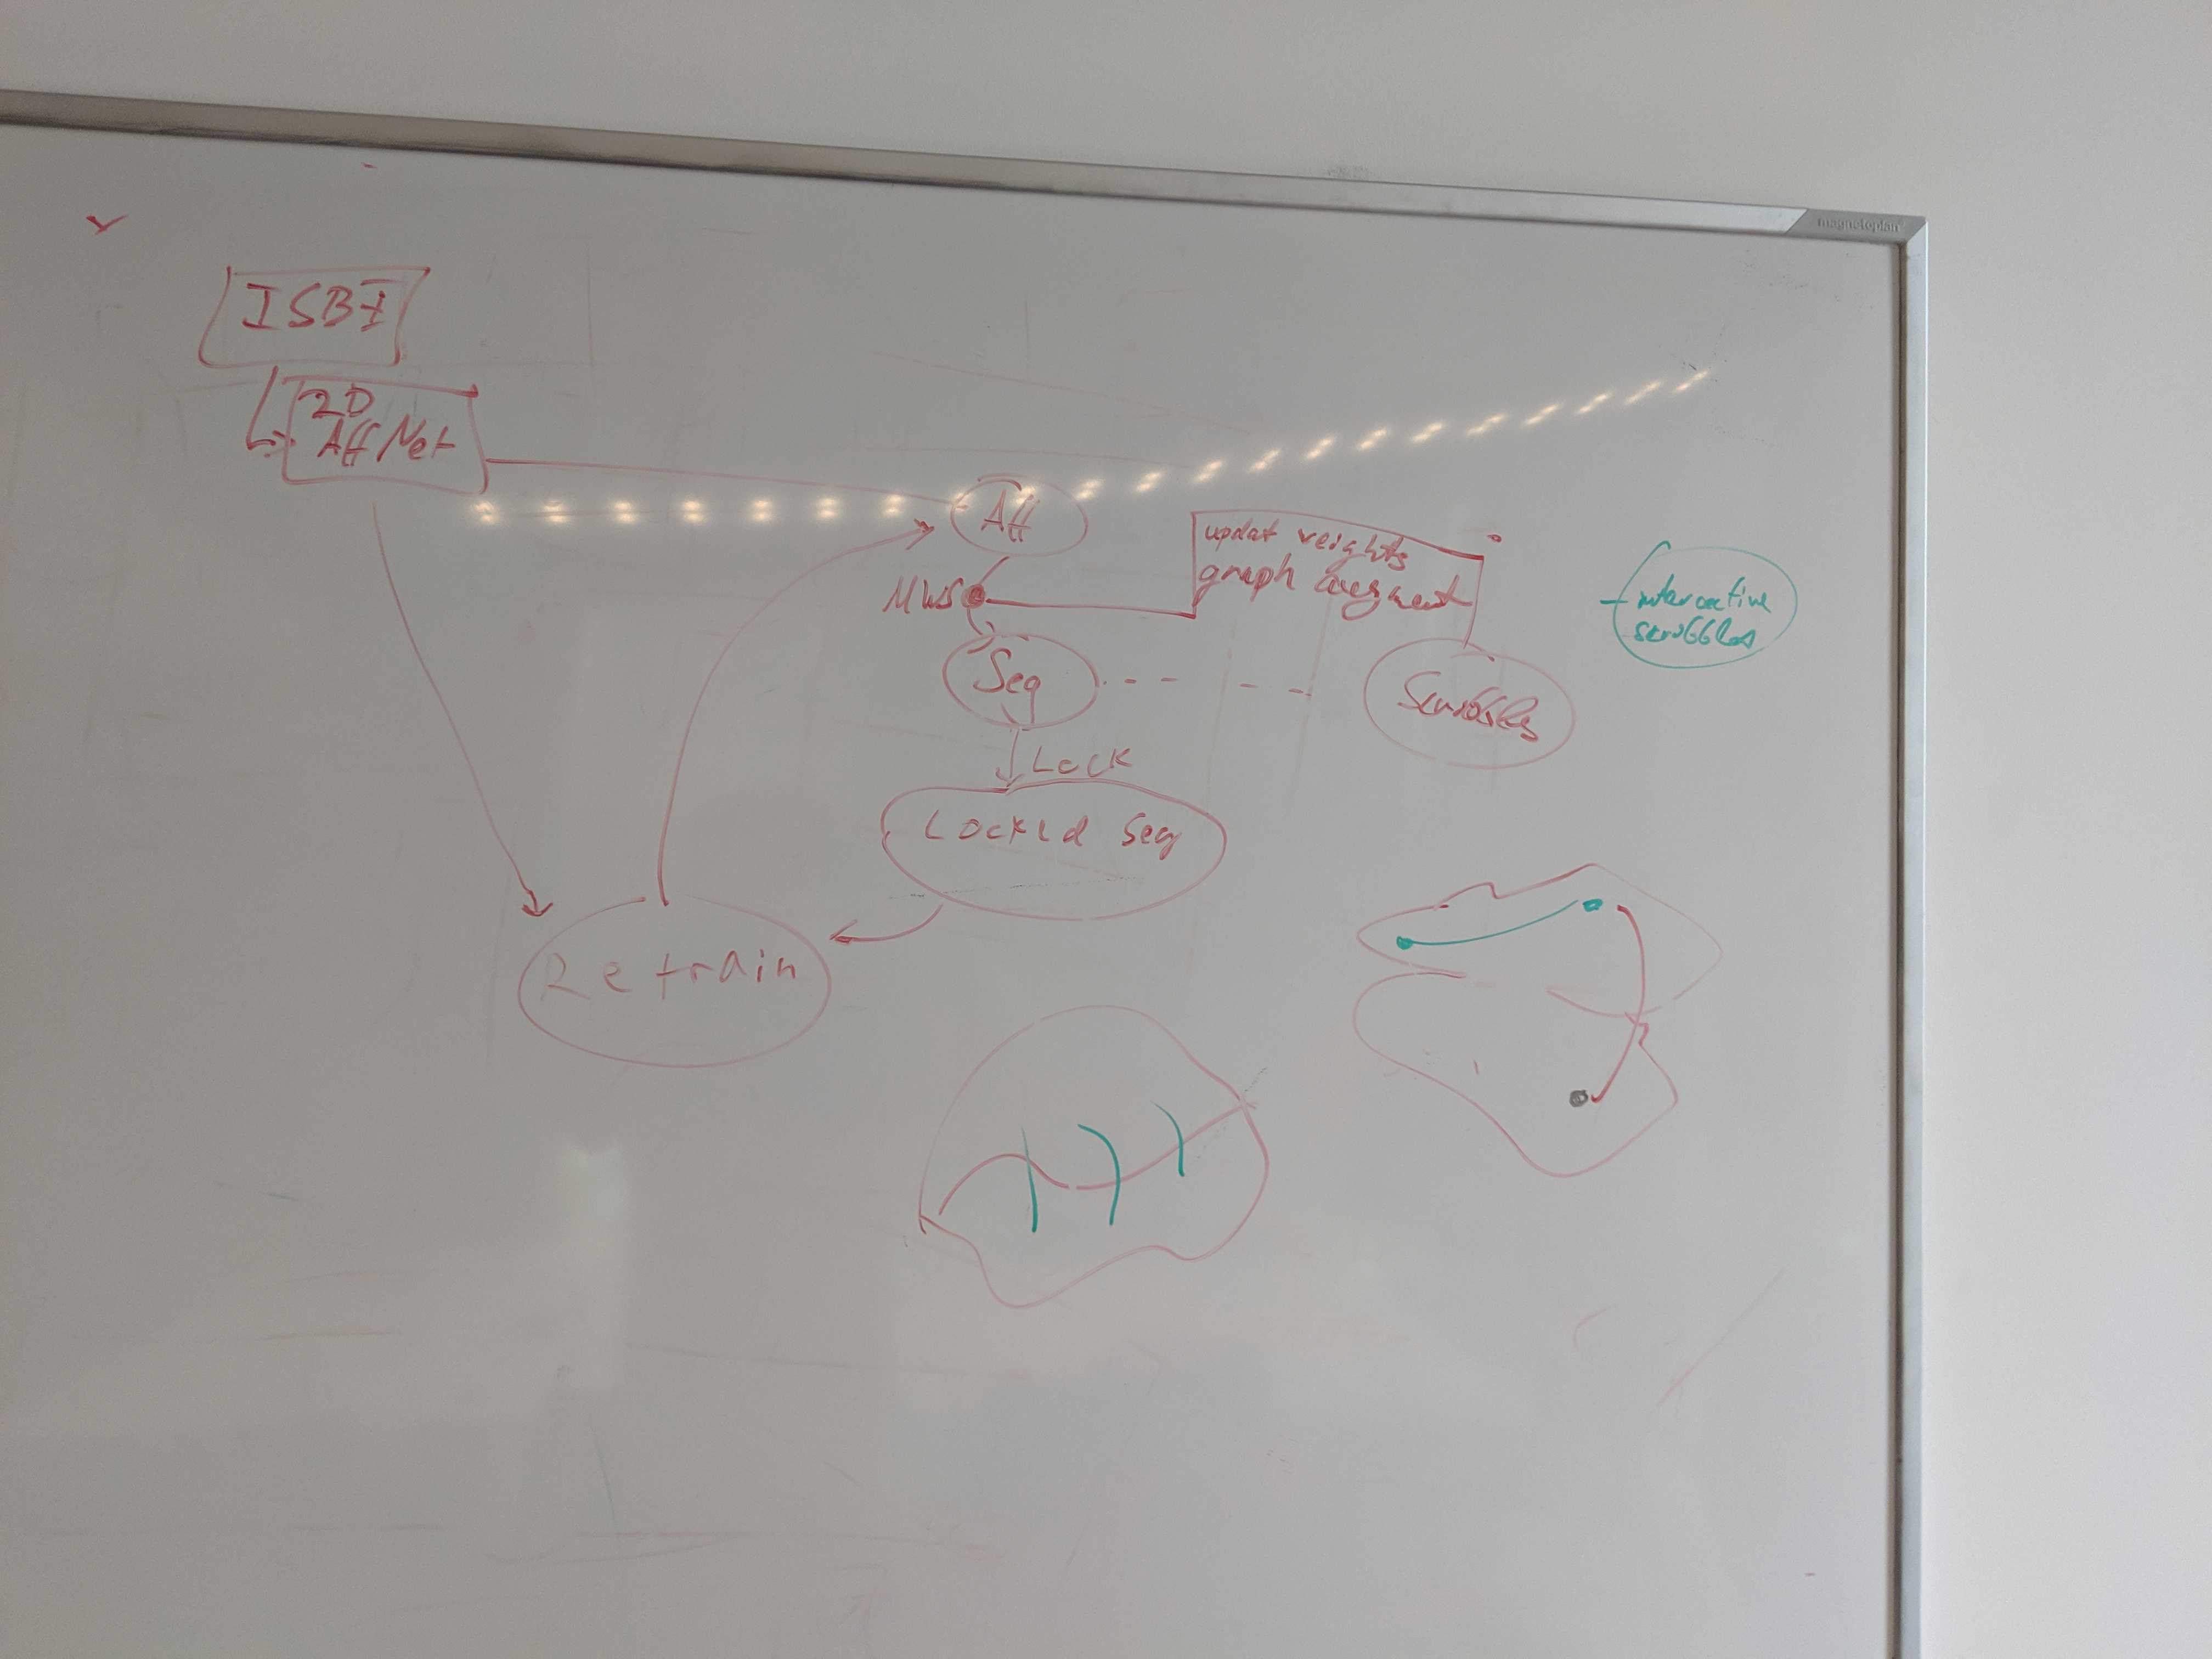 magnetoplan
ISBI
2D
AffNet
Aff
updat weights
graph augment
MWS
interactive
scribbles
Seg
Scribbles
Lock
Locked Seg
Retrain